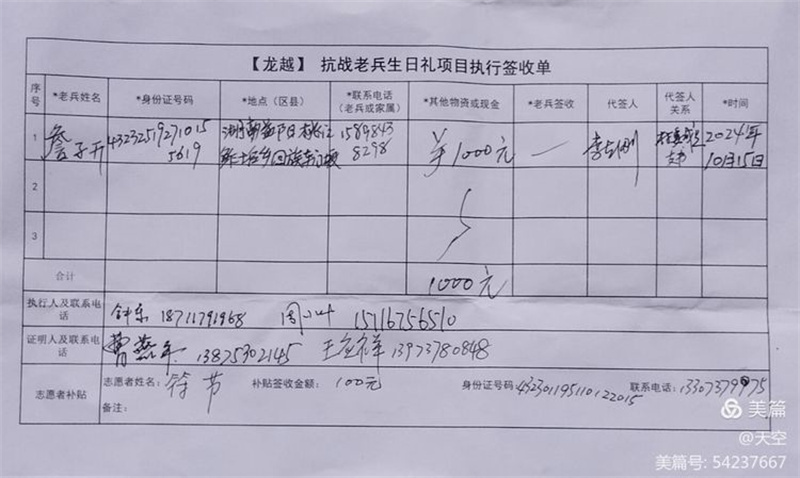 【龙越】 抗战老兵生日礼项目执行签收单
序号 *老兵姓名 *身份证号码 *地点（区县） *联系电话（老兵或家属） *其他物资或现金 *老兵签收 代签人 代签人关系 *时间
1 詹子开 432325192710155619 1589843 8298 ¥1000元 — 2024年10月15日
2
3
合计 1000元
执行人及联系电话 钟东 18711791968 周小叶 15116756510
证明人及联系电话 曹燕年 13875302145 王应祥 13973780848
志愿者补贴 志愿者姓名： 符芳 补贴签收金额： 100元 身份证号码： 432301195110122015 联系电话：
备注：
美篇
@天空
美篇号: 54237667